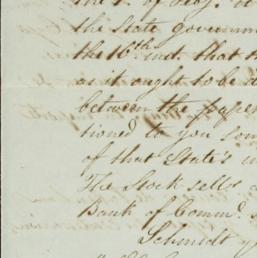 the State governm
the 16th inst. that th
as it ought to be d
between the paper
tioned to you som
of that State's in
The Stock sells a
Bank of Commd. s
Schmidt y